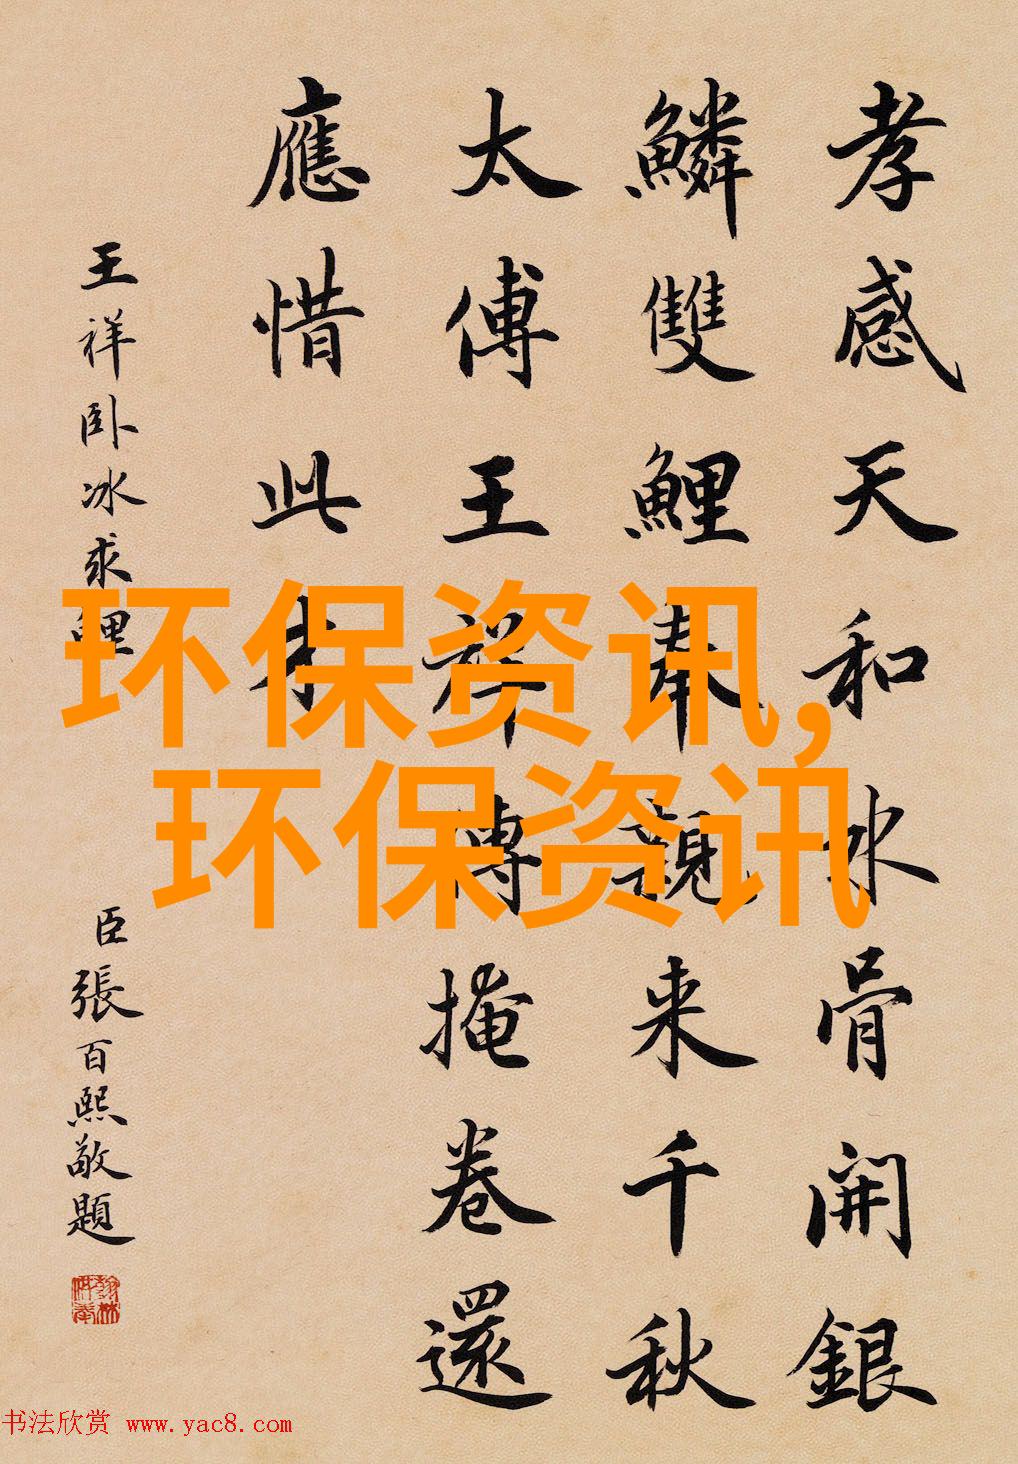 孝感天和冰骨開銀
鱗雙鯉奉親来千秋
太傅王祥傳掩卷還
應惜此才
王祥卧冰求鯉
臣張百熙敬題
环保资讯,
环保资讯
书法欣赏 www.yac8.com